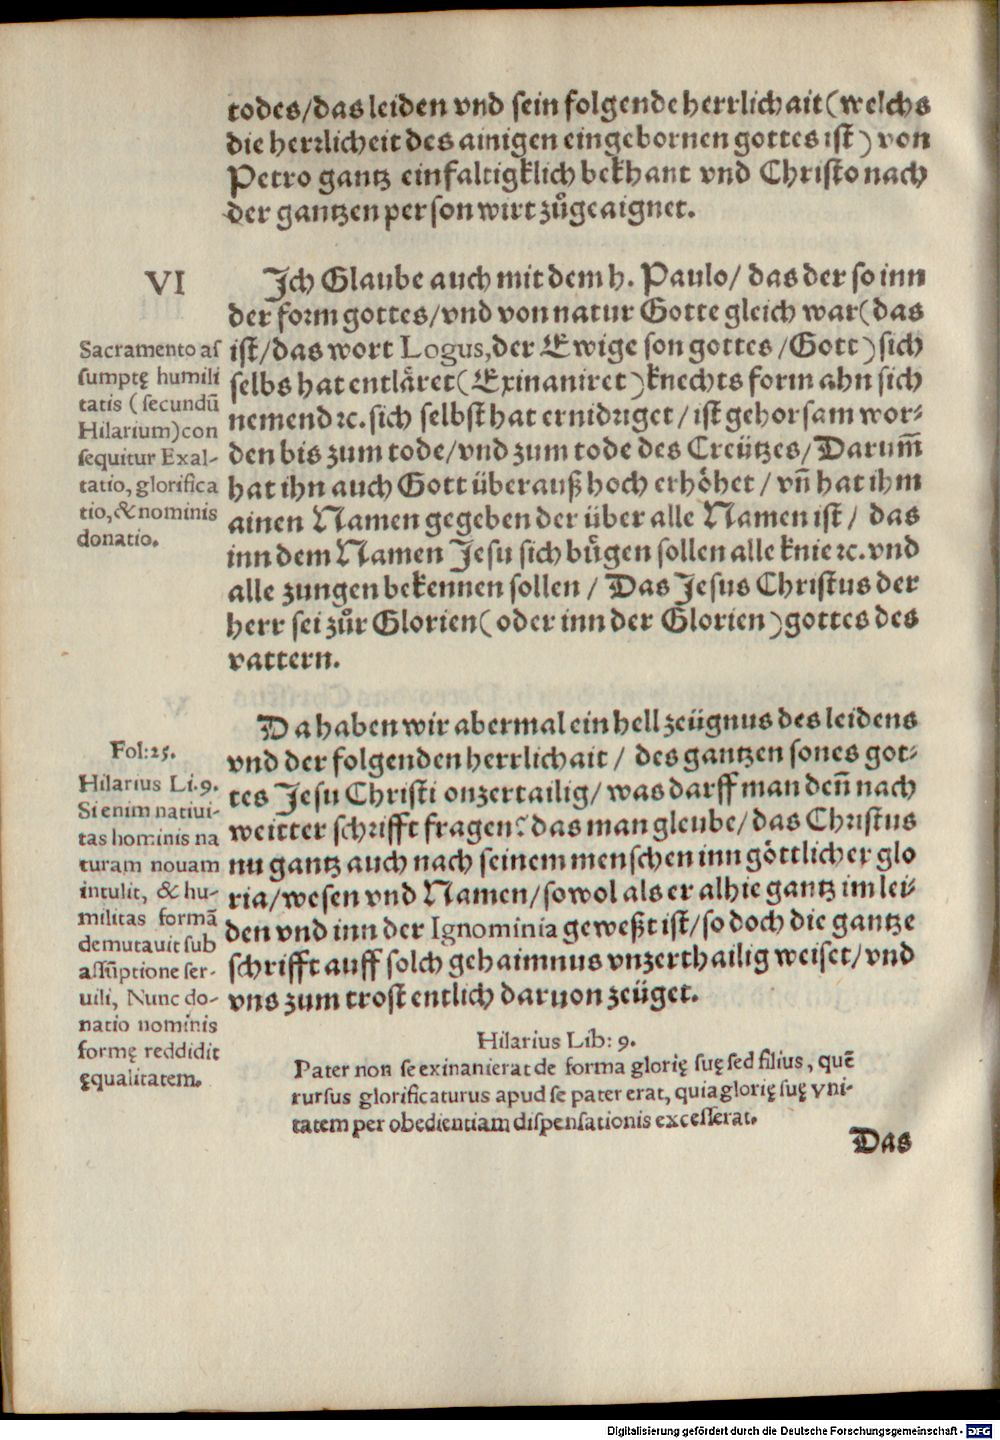 todes/das leiden vnd sein folgende herrlichait (welchs
die herrlicheit des ainigen eingebornen gottes ist) von
Petro gantz einfaltigklich bekhant vnd Christo nach
der gantzen person wirt zůgeaignet.
VI
Ich Glaube auch mit dem h. Paulo/ das der so inn
der form gottes/vnd von natur Gotte gleich war (das
ist/das wort Logus, der Ewige son gottes/Gott) sich
selbs hat entläret (Exinaniret) knechts form ahn sich
nemend ꝛc. sich selbst hat ernidriget/ist gehorsam wor-
den bis zum tode/vnd zum tode des Creützes/Darum̃
hat ihn auch Gott überauß hoch erhöhet/vñ hat ihm
ainen Namen gegeben der über alle Namen ist/ das
inn dem Namen Jesu sich bůgen sollen alle knie ꝛc. vnd
alle zungen bekennen sollen/ Das Jesus Christus der
herr sei zůr Glorien (oder inn der Glorien) gottes des
vattern.
Sacramento as
sumptę humili
tatis (secundũ
Hilarium) con
sequitur Exal-
tatio, glorifica
tio, & nominis
donatio.
Da haben wir abermal ein hell zeügnus des leidens
vnd der folgenden herrlichait/ des gantzen sones got-
tes Jesu Christi onzertailig/was darff man deñ nach
weitter schrifft fragen? das man gleube/das Christus
nu gantz auch nach seinem menschen inn göttlicher glo
ria/wesen vnd Namen/sowol als er alhie gantz im lei-
den vnd inn der Ignominia geweßt ist/so doch die gantze
schrifft auff solch gehaimnus vnzerthailig weiset/vnd
vns zum trost entlich daruon zeüget.
Fol: 25.
Hilarius Li. 9.
Si enim natiui-
tas hominis na
turam nouam
intulit, & hu-
militas formã
demutauit sub
assũptione ser-
uili, Nunc do-
natio nominis
formę reddidit
ęqualitatem.
Hilarius Lib: 9.
Pater non se exinanierat de forma glorię suę sed filius, quẽ
rursus glorificaturus apud se pater erat, quia glorię suę vni-
tatem per obedientiam dispensationis excesserat.
Das
Digitalisierung gefördert durch die Deutsche Forschungsgemeinschaft - DFG